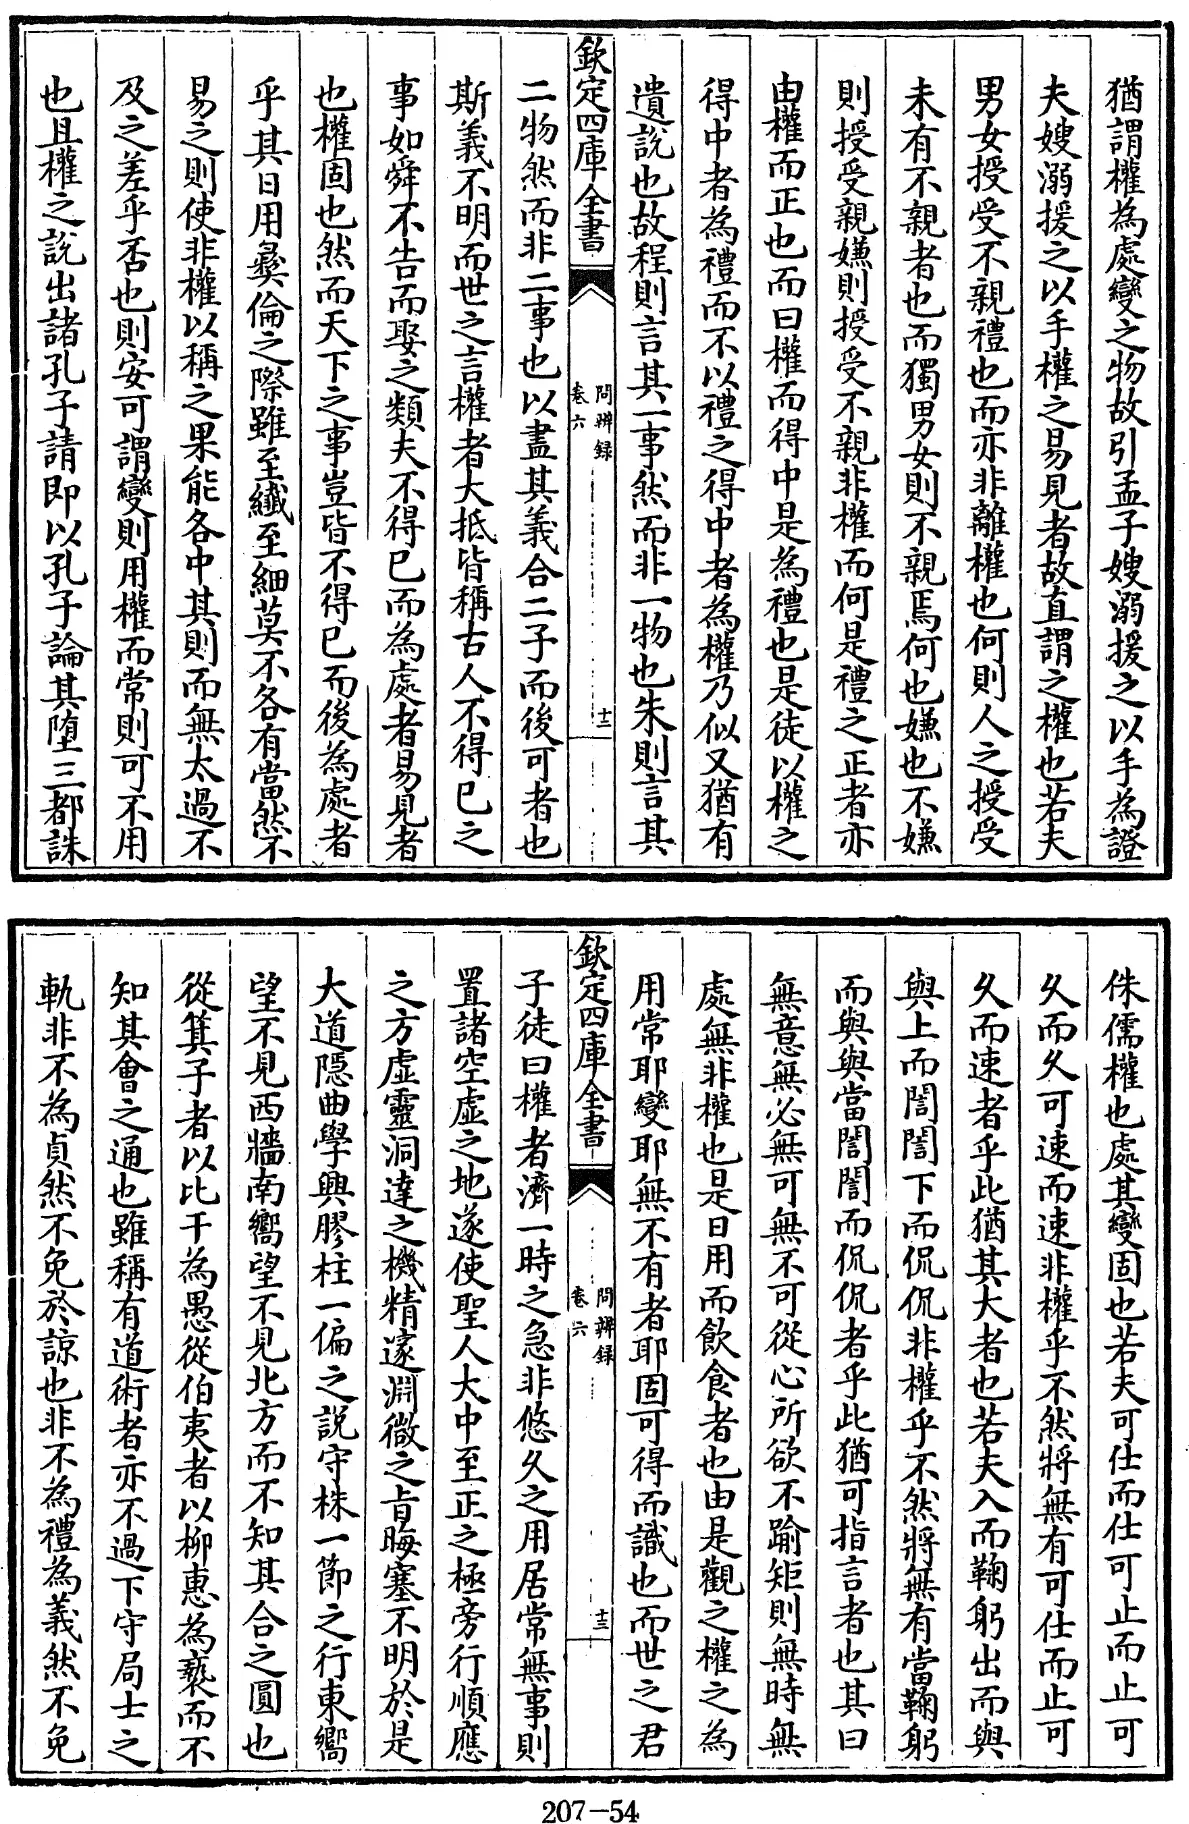 猶謂權為處變之物故引孟子嫂溺援之以手為證
夫嫂溺援之以手權之易見者故直謂之權也若夫
男女授受不親禮也而亦非離權也何則人之授受
未有不親者也而獨男女則不親焉何也嫌也不嫌
則授受親嫌則授受不親非權而何是禮之正者亦
由權而正也而曰權而得中是為禮也是徒以權之
得中者為禮而不以禮之得中者為權乃似又猶有
遺說也故程則言其一事然而非一物也朱則言其
欽定四庫全書
問辨録
卷六
十二
二物然而非二事也以盡其義合二子而後可者也
斯義不明而世之言權者大抵皆稱古人不得已之
事如舜不告而娶之類夫不得已而為處者易見者
也權固也然而天下之事豈皆不得已而後為處者
乎其日用彝倫之際雖至纖至細莫不各有當然不
易之則使非權以稱之果能各中其則而無太過不
及之差乎否也則安可謂變則用權而常則可不用
也且權之說出諸孔子請即以孔子論其墮三都誅
侏儒權也處其變固也若夫可仕而仕可止而止可
久而久可速而速非權乎不然將無有可仕而止可
久而速者乎此猶其大者也若夫入而鞠躬出而與
與上而誾誾下而侃侃非權乎不然將無有當鞠躬
而與與當誾誾而侃侃者乎此猶可指言者也其曰
無意無必無可無不可從心所欲不踰矩則無時無
處無非權也是日用而飲食者也由是觀之權之為
用常耶變耶無不有者耶固可得而識也而世之君
欽定四庫全書
問辨録
卷六
十三
子徒曰權者濟一時之急非悠久之用居常無事則
置諸空虛之地遂使聖人大中至正之極旁行順應
之方虛靈洞達之機精邃淵微之旨晦塞不明於是
大道隱曲學興膠柱一偏之說守株一節之行東嚮
望不見西牆南嚮望不見北方而不知其合之圓也
從箕子者以比干為愚從伯夷者以柳惠為褻而不
知其會之通也雖稱有道術者亦不過下守局士之
軌非不為貞然不免於諒也非不為禮為義然不免
207-54